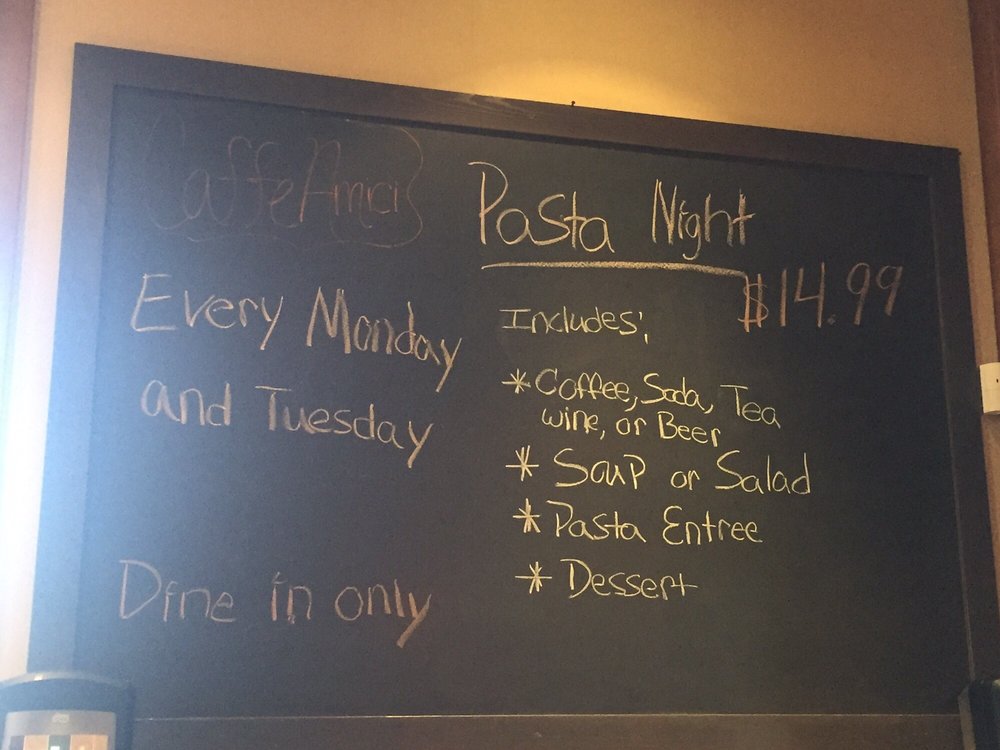 Caffe Amici
Pasta Night
$14.99
Every Monday
and Tuesday
Dine in only
Includes:
* Coffee, Soda, Tea
wine, or Beer
* Soup or Salad
* Pasta Entree
* Dessert